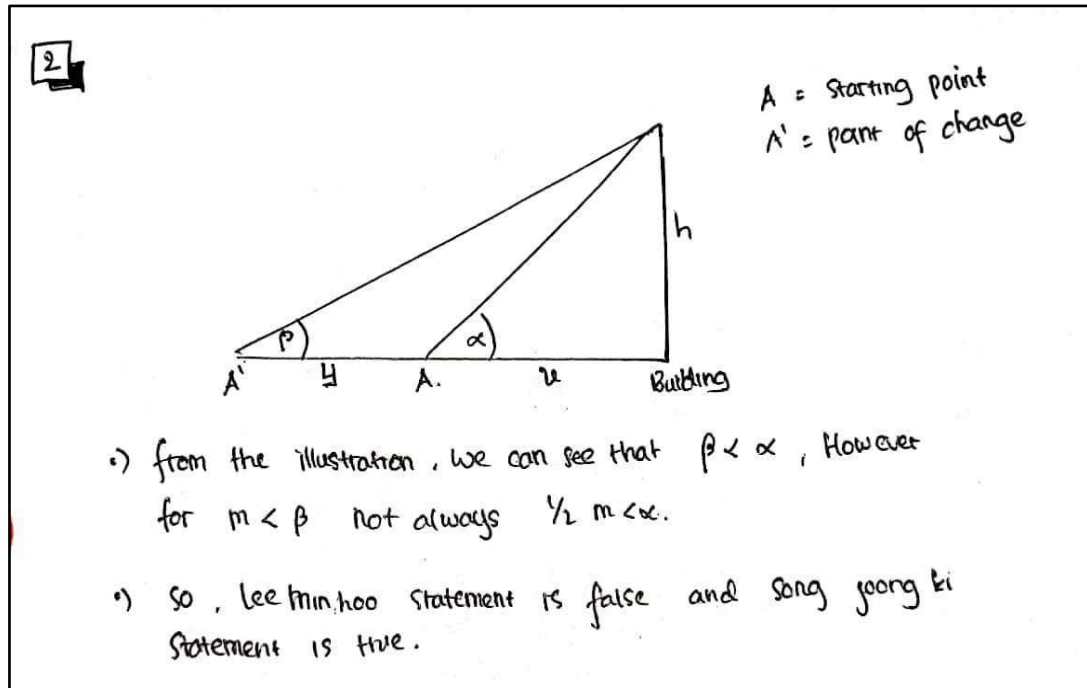 2
A = Starting point
A' = pant of change
h
β
α
A'
y
A.
x
Building
•) from the illustration, we can see that β < α, However
for m < β not always 1/2 m < α.
•) So, Lee min hoo Statement is false and Song joong ki
Statement is true.